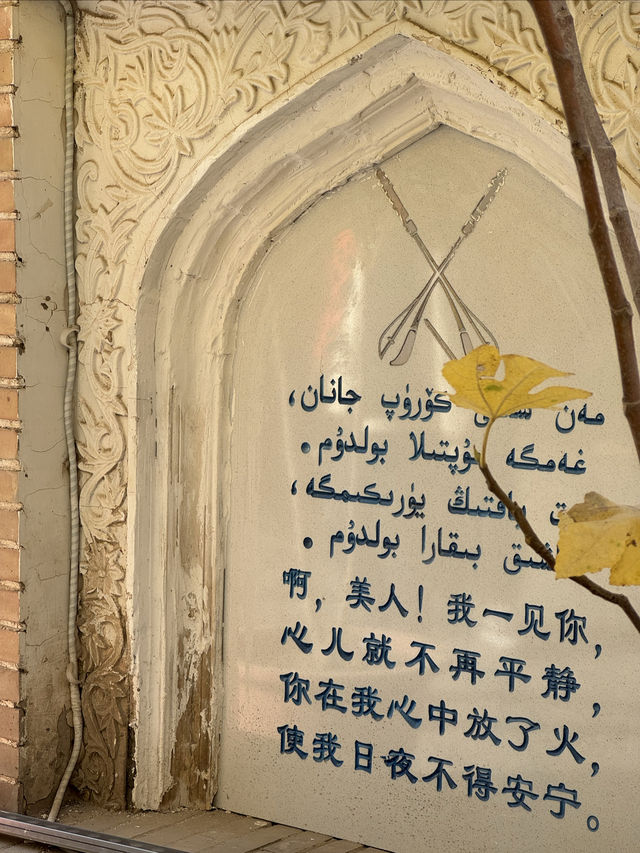 مەن كۆرۈپ جانان،
غەمگە مۇپتىلا بولدۇم.
ياقتىڭ يۈرىكىمگە،
بىقارا بولدۇم.
啊，美人！我一见你，
心儿就不再平静，
你在我心中放了火，
使我日夜不得安宁。